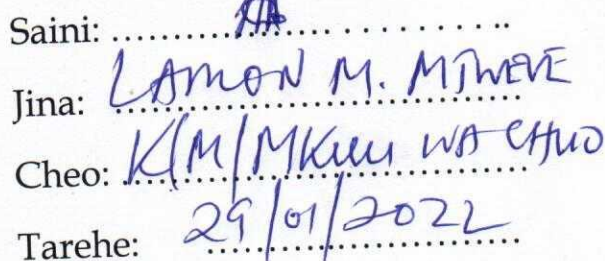 Saini: ....................
Jina: LAMON M. MTWEVE
Cheo: K/M/MKUU WA CHUO
Tarehe: 29/01/2022